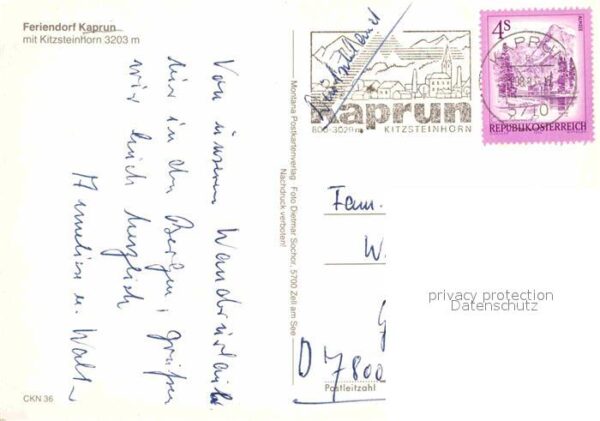 Feriendorf Kaprun
mit Kitzsteinhorn 3203 m
Von unserem Wanderurlaub
hier in den Bergen, grüßen
wir Euch herzlich
Annelies u. Walter
CKN 36
Montana Postkartenverlag Foto Dietmar Sochor, 5700 Zell am See
Nachdruck verboten!
Deutschland
Kaprun
800-3029 m KITZSTEINHORN
4S
ALMSEE
REPUBLIK ÖSTERREICH
KAPRUN
5710
Fam.
W.
G
D 7800
Postleitzahl
privacy protection
Datenschutz